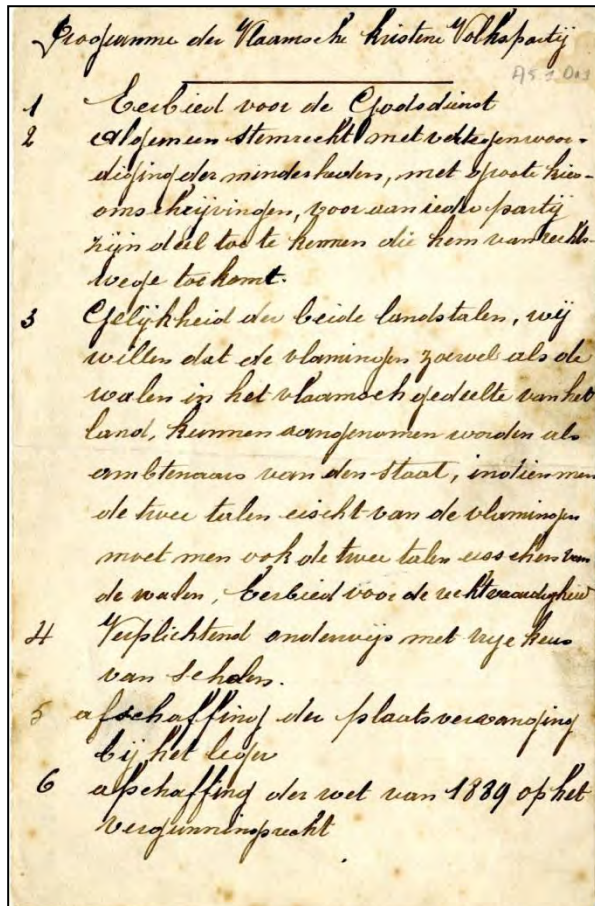 Programme der Vlaamsche kristene Volkspartij
AS 1 D01
1 Eerbied voor de Godsdienst
2 algemeen stemrecht met vertegenwoor-
diging der minderheden, met groote kies-
omschrijvingen, voor aan iedre partij
zijn deel toe te kennen die hem van rechts-
wege toekomt.
3 Gelijkheid der beide landstalen, wij
willen dat de vlamingen zoowel als de
walen in het vlaamsch gedeelte van het
land, kunnen aangenomen worden als
ambtenaars van den staat, indien men
de twee talen eischt van de vlamingen
moet men ook de twee talen eisschen van
de walen, Eerbied voor de rechtvaardigheid
4 Verplichtend onderwijs met vrije keus
van scholen.
5 afschaffing der plaatsvervanging
bij het leger
6 afschaffing der wet van 1889 op het
vergunningsrecht